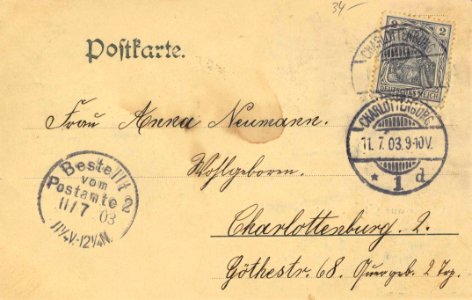 34-
Postkarte.
2 2
DEUTSCHES REICH
CHARLOTTENBURG
CHARLOTTENBURG
11.7.03.9-10V.
* 1 d
Frau Anna Neumann.
Wohlgeboren.
Bestellt
vom
Postamte 2
11/7 03
11¼V.-12¼N.
Charlottenburg. 2.
Göthestr. 68. Quergeb. 2 Trp.